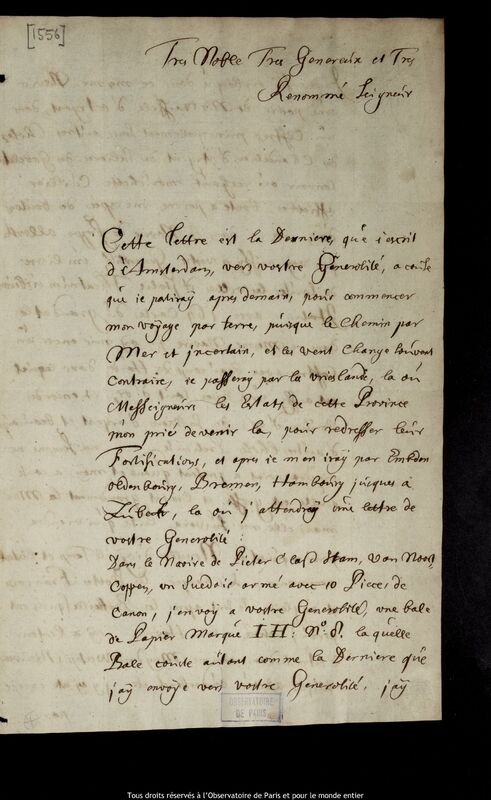 [1556]
Tres Noble Tres Genereux et Tres
Renommé Seigneur
Cette lettre est la Derniere, que j'escrit
d'Amsterdam, vers vostre Generosité, a cause
que je partiray apres demain, pour commencer
mon voyage par terre, puisque le Chemin par
Mer et incertain, et les vent Change souvent
Contraire, je passeray par la vrieslande, la ou
Messeigneurs les Estats de cette Province
m'on prié de venir la, pour redresser leur
Fortifications, et apres je m'en iray par Embden
oldenbourg, Bremen, Hambourg jusques a
Lübeck, la ou j attendray une lettre de
vostre Generosité:
Dans le Navire de Pieter Clasd Ham, van Noort
Coppen, un Suedois armé avec 10 Pieces de
Canon, j'envoy a vostre Generosité, une bale
de Papier Marqué IH: No. 8. la quelle
Bale couste autant comme la Derniere que
j'aÿ envoye vers vostre Generosité, j'aÿ
OBSERVATOIRE
DE PARIS
Tous droits réservés à l'Observatoire de Paris et pour le monde entier